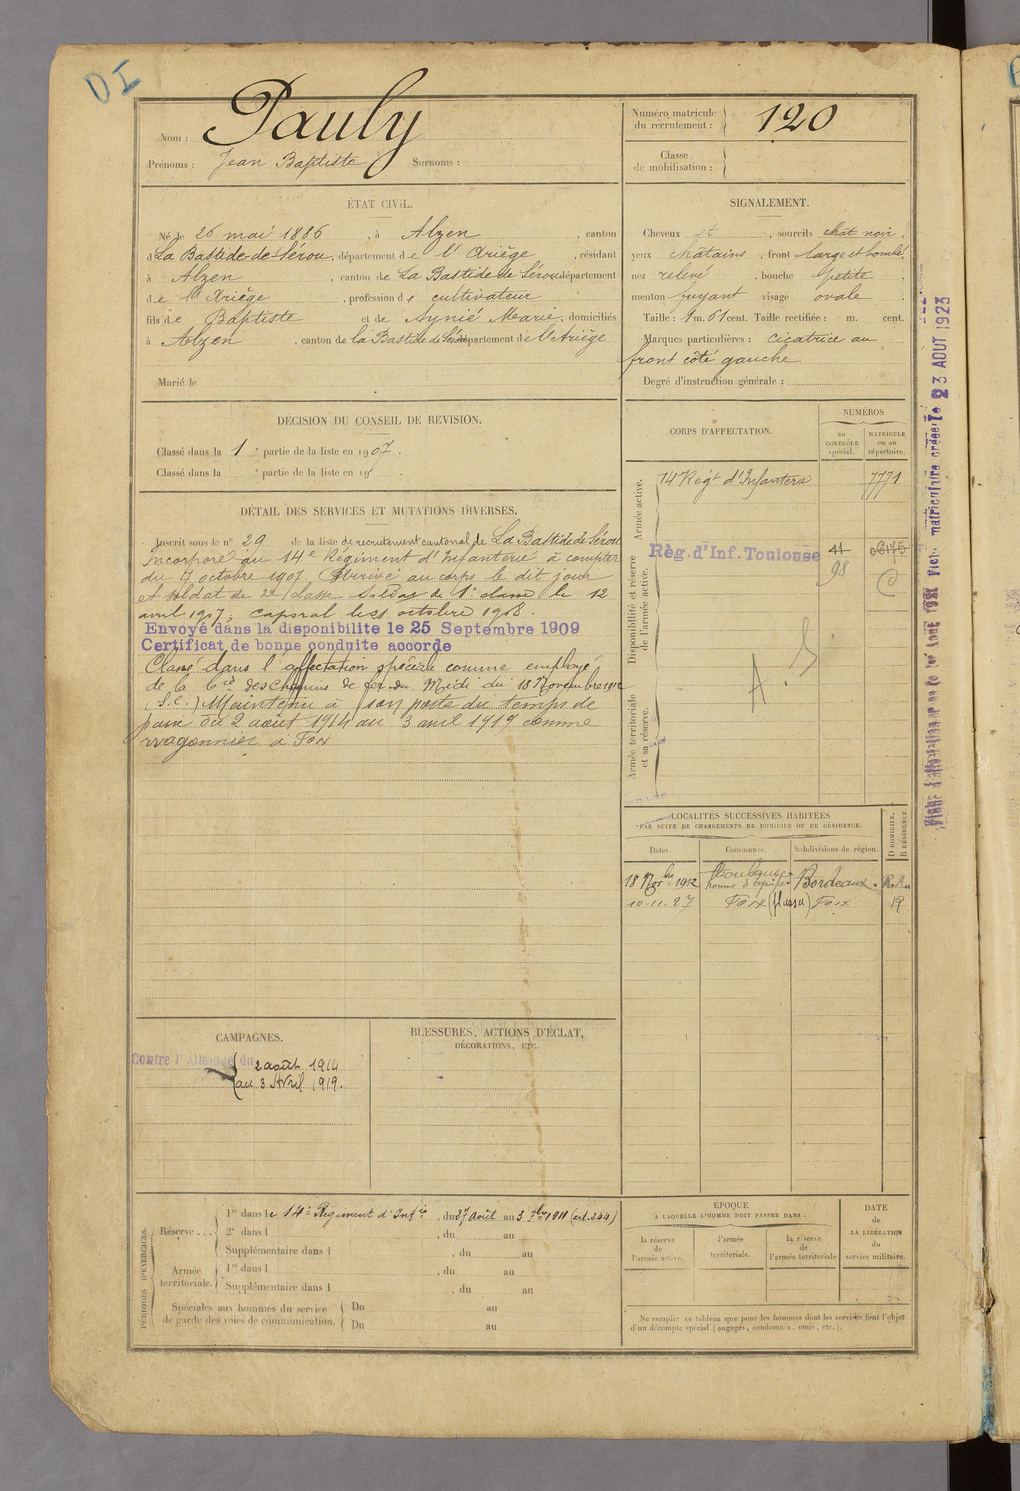 DI
Nom : Pauly
Prénoms : Jean Baptiste Surnoms :
Numéro matricule du recrutement : 120
Classe de mobilisation :
ÉTAT CIVIL.
Né le 26 mai 1886, à Alzen, canton
d La Bastide-de-Sérou, département de l'Ariège, résidant
à Alzen, canton de La Bastide de Sérou département
de l'Ariège, profession de cultivateur
fils de Baptiste et de Synié Marie, domiciliés
à Alzen, canton de la Bastide de Sérou département de l'Ariège
Marié le
SIGNALEMENT.
Cheveux et, sourcils chât noir.
yeux châtains, front large et bombé
nez relevé, bouche petite
menton fuyant visage ovale
Taille : 1 m. 61 cent. Taille rectifiée : m. cent.
Marques particulières : cicatrice au
front côté gauche
Degré d'instruction générale :
DÉCISION DU CONSEIL DE REVISION.
Classé dans la 1e partie de la liste en 1907.
Classé dans la e partie de la liste en 19 .
CORPS D'AFFECTATION.
NUMÉROS
au CONTRÔLE spécial.
MATRICULE ou au répertoire.
Armée active.
14 Régt d'Infanterie 7771
Disponibilité et réserve de l'armée active.
Rég. d'Inf. Toulouse 41 06175
98
A. S.
Armée territoriale et sa réserve.
DÉTAIL DES SERVICES ET MUTATIONS DIVERSES.
Inscrit sous le n° 29 de la liste de recrutement cantonal de La Bastide de Sérou
Incorporé au 14e Régiment d'Infanterie à compter
du 7 octobre 1907. Arrivé au corps le dit jour
et soldat de 2e classe soldat de 1e classe le 12
avril 1907; caporal le 21 octobre 1908.
Envoyé dans la disponibilite le 25 Septembre 1909
Certificat de bonne conduite accorde
Classé dans l'affectation spéciale comme employé
de la Cie des Chemins de fer du Midi du 18 Novembre 1912
(S.C.) Maintenu à son poste du temps de
paix du 2 août 1914 au 3 avril 1919 comme
wagonnier à Foix
LOCALITÉS SUCCESSIVES HABITÉES
PAR SUITE DE CHANGEMENTS DE DOMICILE OU DE RÉSIDENCE.
Dates. Communes. Subdivisions de région. D DOMICILE. R RÉSIDENCE.
18 Nov bre 1912 Toulouse Bordeaux
10-11-27 Foix Foix
CAMPAGNES.
Contre l'Allemagne du 2 août 1914
au 3 Avril 1919.
BLESSURES, ACTIONS D'ÉCLAT,
DÉCORATIONS, ETC.
PÉRIODES D'EXERCICES.
Réserve ...
1re dans le 14e Régiment d'Infie, du 27 août au 3 7bre 1911 (art. 244)
2e dans l , du au
Supplémentaire dans l , du au
Armée territoriale.
1re dans l , du au
Supplémentaire dans l , du au
Spéciales aux hommes du service de garde des voies de communication.
Du au
Du au
ÉPOQUE
À LAQUELLE L'HOMME DOIT PASSER DANS :
la réserve de l'armée active.
l'armée territoriale.
la réserve de l'armée territoriale
DATE de LA LIBÉRATION du service militaire.
Ne remplir ce tableau que pour les hommes dont les services font l'objet
d'un décompte spécial (engagés, condamnés, omis, etc.).
matriculaire créée le 23 AOUT 1923